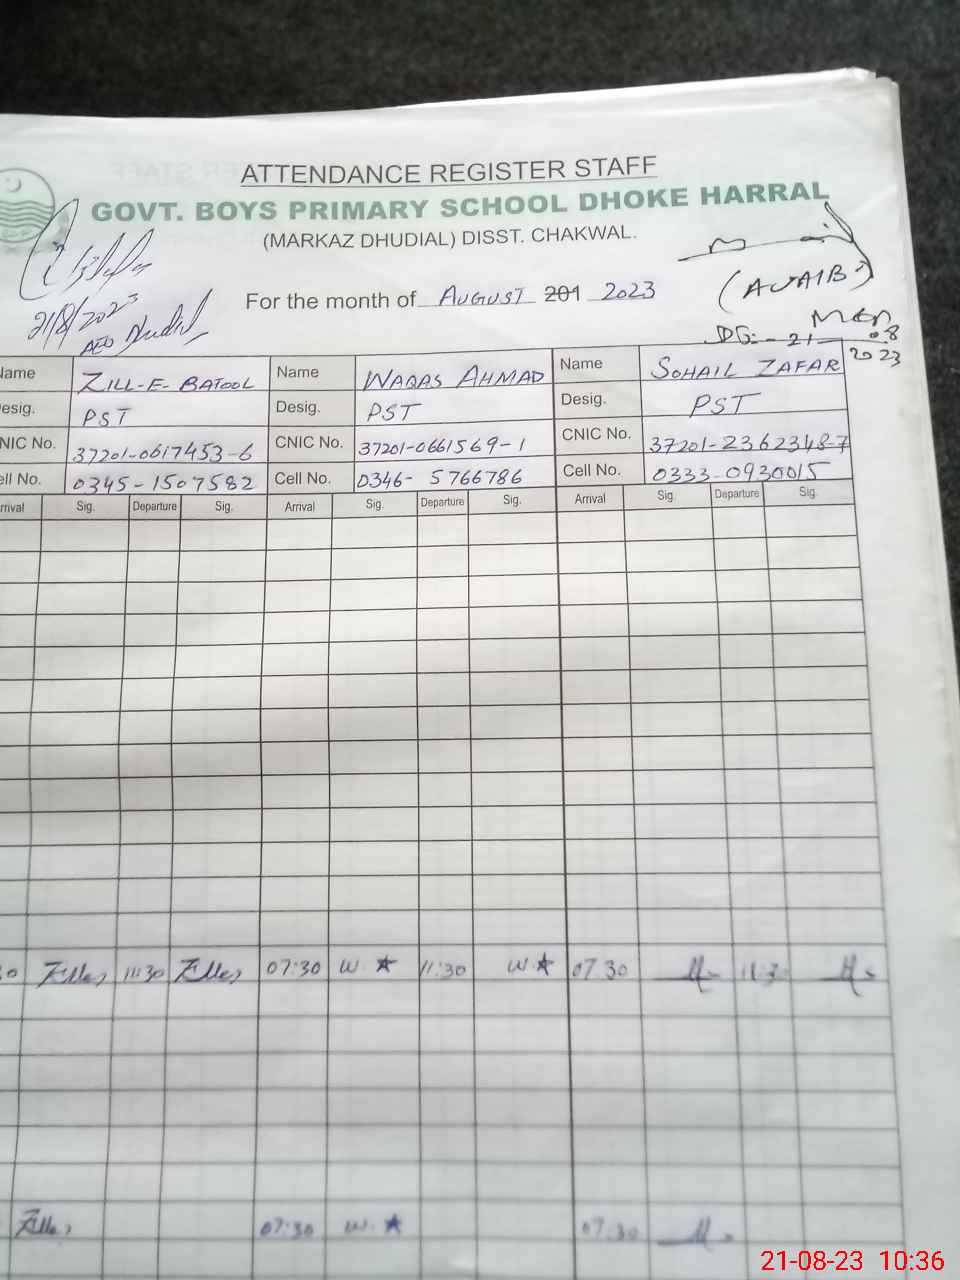 ATTENDANCE REGISTER STAFF
GOVT. BOYS PRIMARY SCHOOL DHOKE HARRAL
(MARKAZ DHUDIAL) DISST. CHAKWAL.
21/8/2023
AEO Dhudial
For the month of AUGUST 201 2023
(AUAIB)
MEA
DG:- 21-08
2023
Name ZILL-E-BATOOL Name WAQAS AHMAD Name SOHAIL ZAFAR
Desig. PST Desig. PST Desig. PST
CNIC No. 37201-0617453-6 CNIC No. 37201-0661569-1 CNIC No. 37201-2362348-7
Cell No. 0345-1507582 Cell No. 0346-5766786 Cell No. 0333-0930015
Arrival Sig. Departure Sig. Arrival Sig. Departure Sig. Arrival Sig. Departure Sig.
30 Zille 11:30 Zille 07:30 W.★ 11:30 W.★ 07:30 11:30
Zille 07:30 W.★ 07:30
21-08-23 10:36